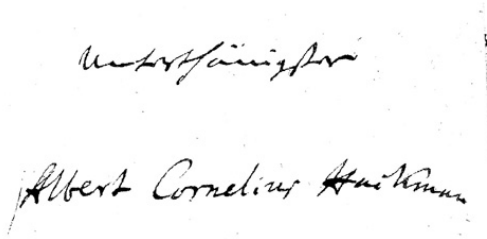 Unterthänigster
Albert Cornelius Hackman